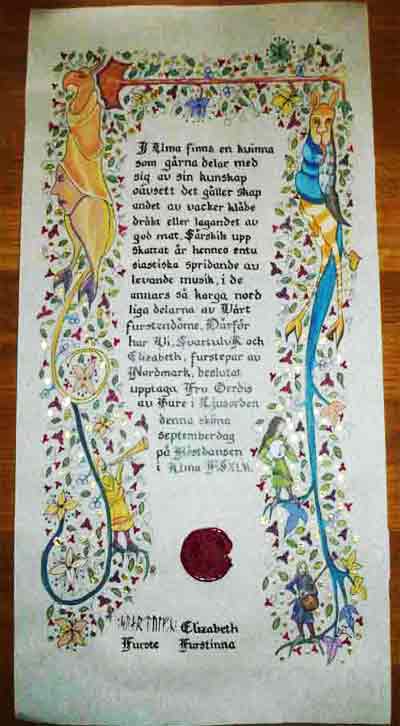 I Uma finns en kvinna
som gärna delar med
sig av sin kunskap
oavsett det gäller skap
andet av vacker klåde
dräkt eller lagandet av
god mat. Särskilt upp
skattat är hennes entu
siastiska spridande av
levande musik, i de
annars så karga nord
liga delarna av Vårt
furstendöme. Därför
har Vi, SvartulvR och
Elizabeth, furstepar av
Nordmark, beslutat
upptaga Fru Gerdis
av Sure i Ljusorden
denna sköna
septemberdag
på Höstdansen
i Uma
Elizabeth
Furste Furstinna